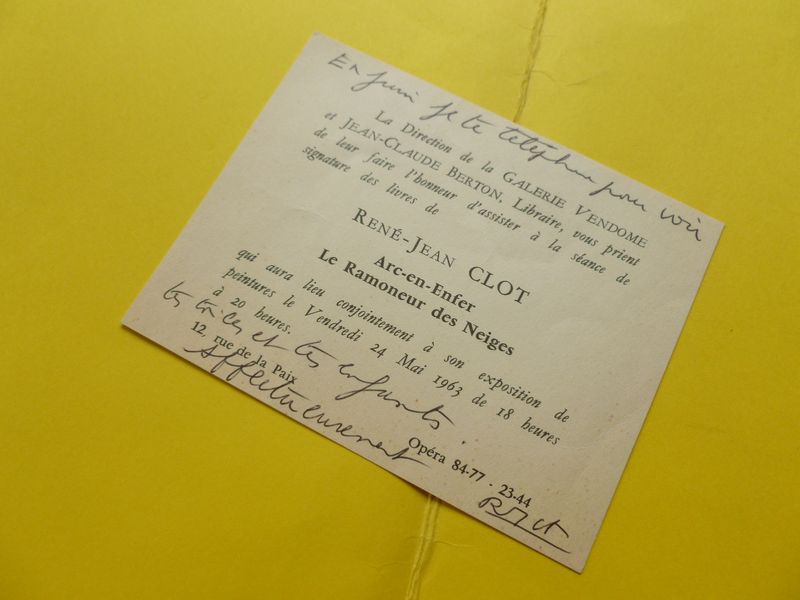 En juin je te téléphone pour voir
La Direction de la GALERIE VENDOME
et JEAN-CLAUDE BERTON, Libraire, vous prient
de leur faire l'honneur d'assister à la séance de
signature des livres de
RENÉ-JEAN CLOT
Arc-en-Enfer
Le Ramoneur des Neiges
qui aura lieu conjointement à son exposition de
peintures le Vendredi 24 Mai 1963 de 18 heures
à 20 heures.
tes toiles et tes enfants.
12, rue de la Paix
Opéra 84-77 - 23-44
Affectueusement